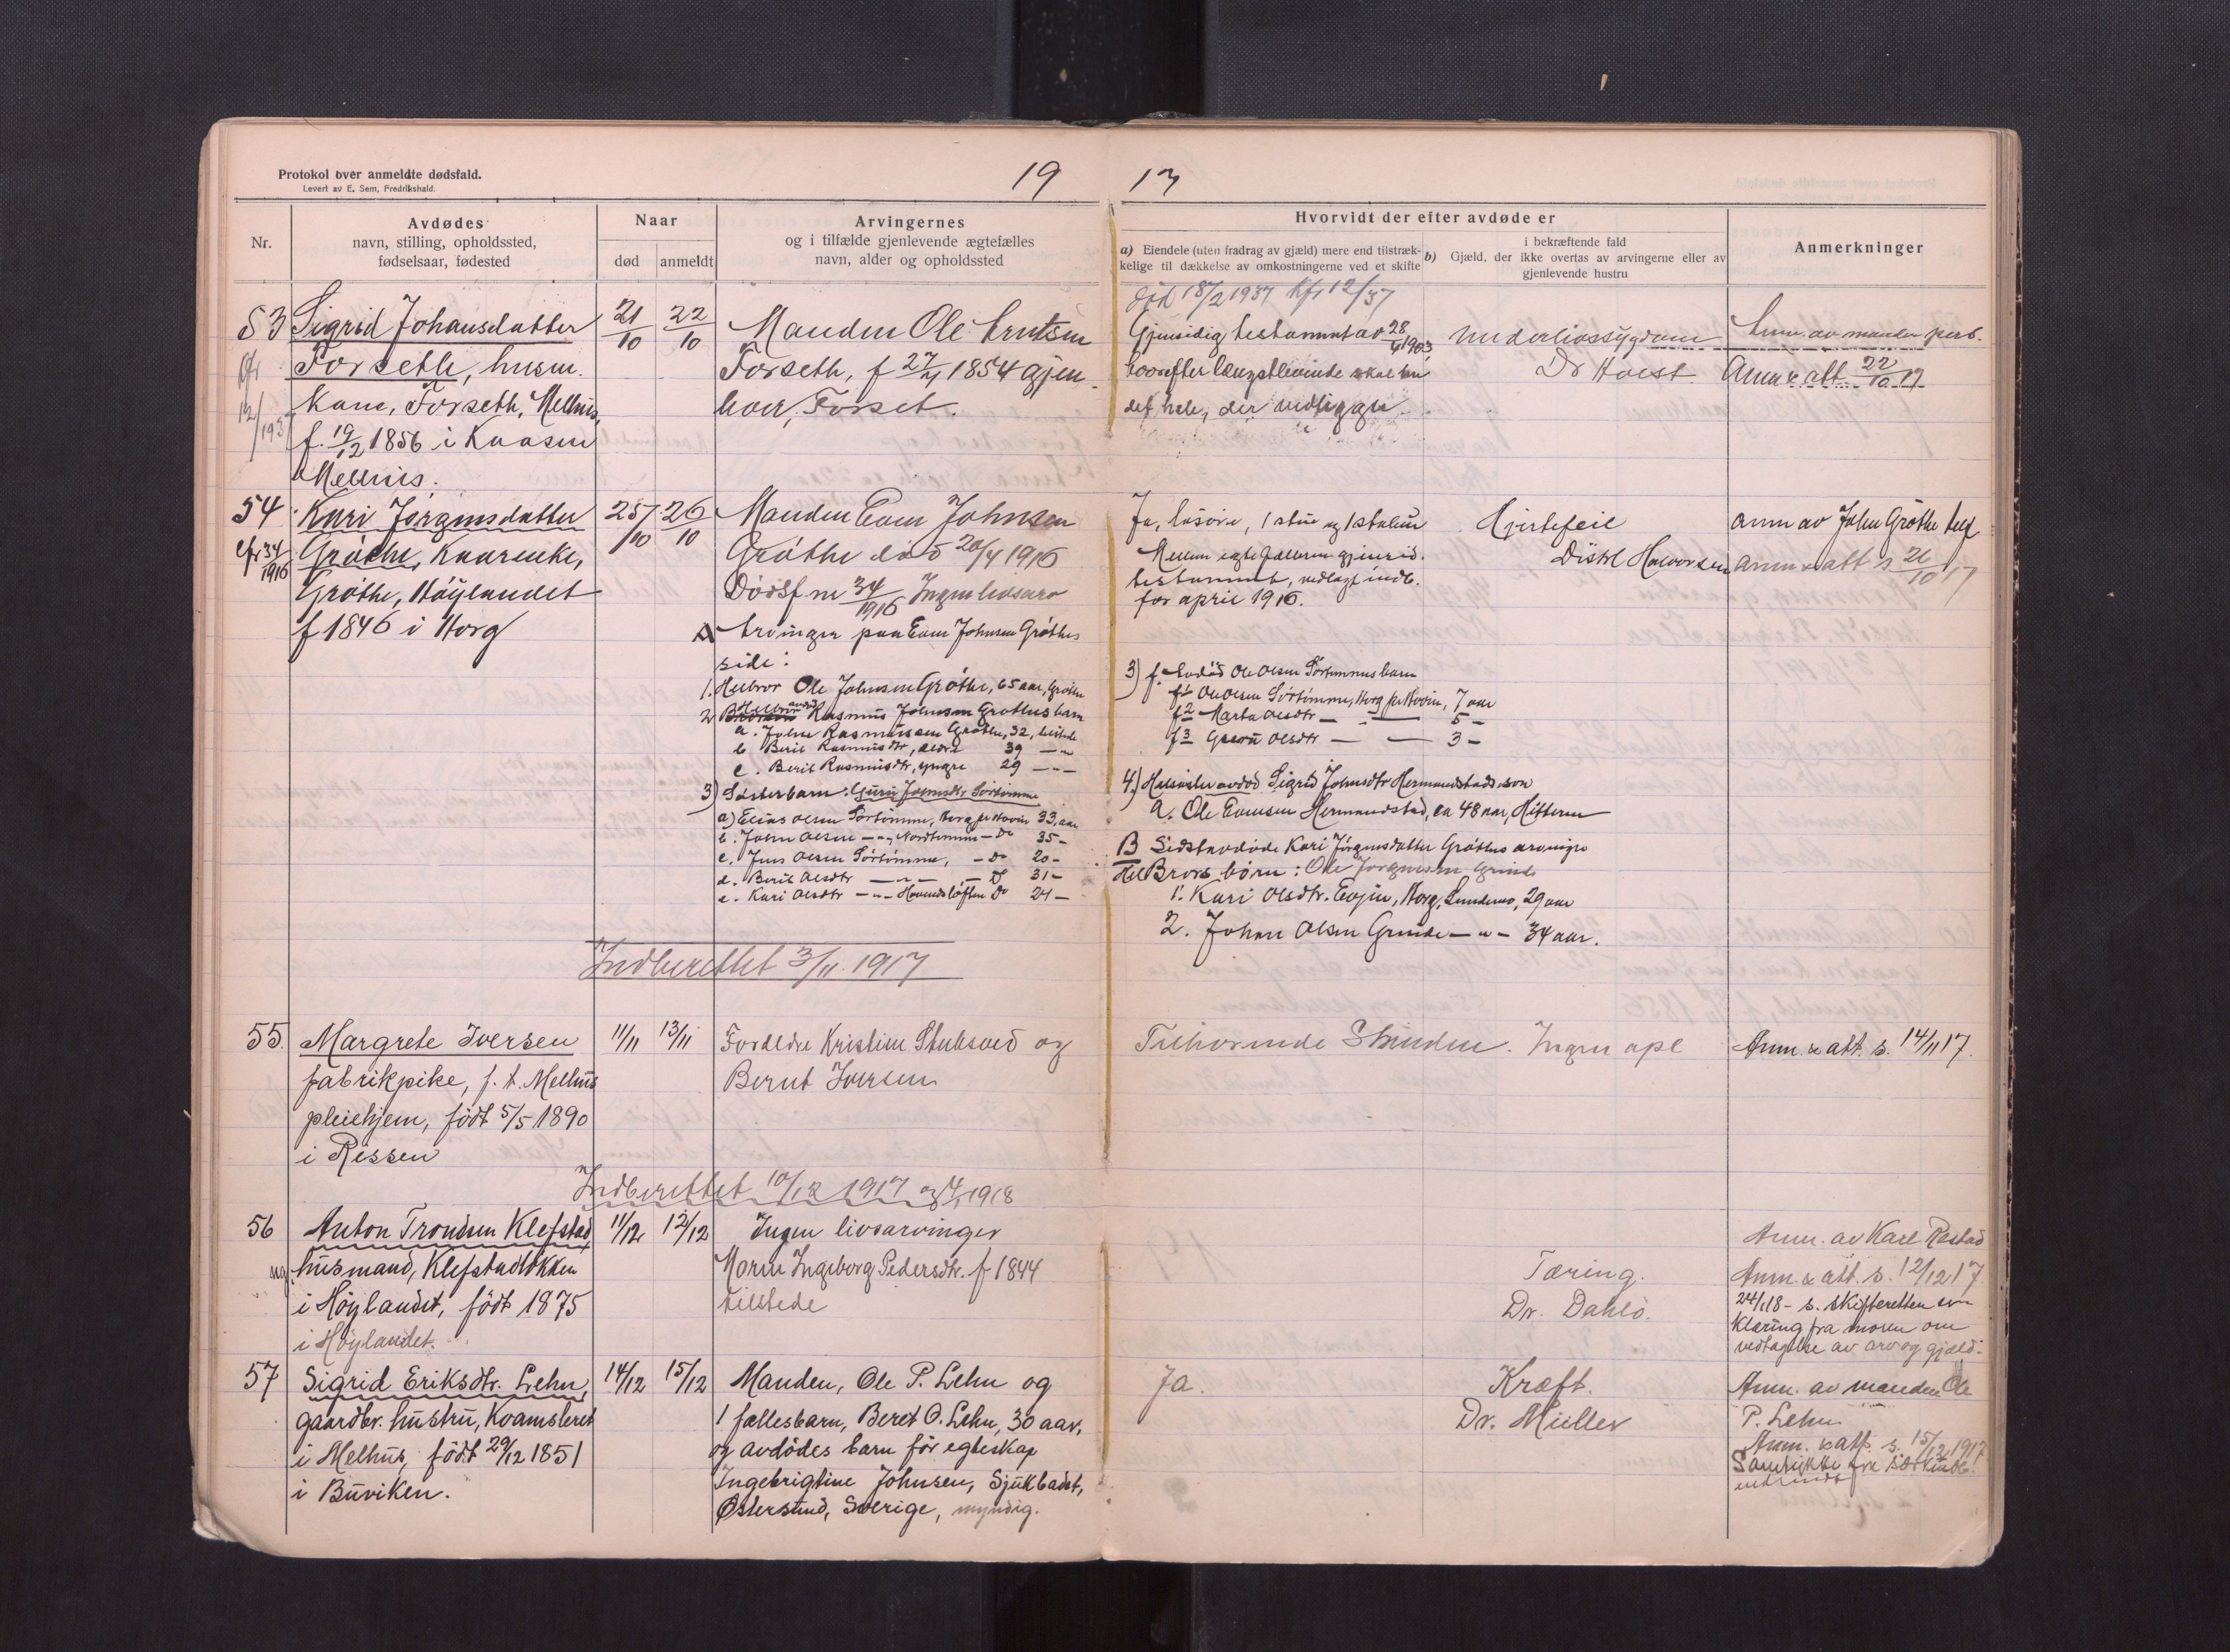 Protokol over anmeldte dødsfald.
Levert av E. Sem, Fredrikshald.
19 17
Nr.
Avdødes
navn, stilling, opholdssted,
fødselsaar, fødested
Naar
død
anmeldt
Arvingernes
og i tilfælde gjenlevende ægtefælles
navn, alder og opholdssted
Hvorvidt der efter avdøde er
a) Eiendele (uten fradrag av gjæld) mere end tilstræk-
kelige til dækkelse av omkostningerne ved et skifte
b) i bekræftende fald
Gjæld, der ikke overtas av arvingerne eller av
gjenlevende hustru
Anmerkninger
53
Sigrid Johansdatter
Forseth, husm.
Kone, Forseth, Melhus,
f. 19/12 1856 i Kaasen
Melhus.
12/1937
21/10
22/10
Manden Ole Arntsen
Forseth, f 27/4 1854 gjen-
bor, Forset.
død 18/2 1937 kfr 12/37
Gjensidig testament av 28/4 1903
hvorefter længstlevende skal ha
det hele, der vedligger
Underlivssygdom
Dr Høest
Anm. av manden pers.
Anm & att 22/10 17
54
cfr 34/1916
Kari Jørgensdatter
Grøthe, Kaarenke,
Grøthe, Höylandet
f 1846 i Horg
25/10
26/10
Manden Even Johnsen
Grøthe død 20/4 1916
Dødsf nr 34/1916 Ingen livsarv
A Arvinger paa Even Johnsen Grøthes
side:
1. Helbror Ole Johnsen Grøthe, 65 aar, Grøthe
2 Helbror avdød Rasmus Johnsen Grøthes barn
a. John Rasmussen Grøthe, 32, tilstede
b. Berit Rasmusdtr, ældre 39 — " —
c. Berit Rasmusdtr, yngre 29 — " —
3) Søsterbarn: Guru Johnsdtr Sørtømme
a) Elias Olsen Sørtømme, Horg pr Hovin 33, aar
b. John Olsen — " — Nordtømme — Do 35 —
c. Jens Olsen Sørtømme, — Do 20 —
d. Berit Olsdtr — " — , — Do 31 —
e. Kari Olsdtr — " — Do 24 —
Ja, løsøre, 1 stue og 1 stabur
Mellem egtefællerne gjensid.
testament, vedlagt indb.
for april 1916.
3) f. Avdød Ole Olsen Sørtømmes barn
f1 Ole Olsen Sørtømme, Horg pr Hovin, 7 aar
f2 Marta Olsdtr — " — 5 —
f3 Guru Olsdtr — — 3 —
4.) Helsøster avdød Sigrid Johnsdtr Hermandstads søn
a. Ole Evensen Hermandstad, ca 48 aar, Hitteren
B Sidstavdøde Kari Jørgensdatter Grøthes arvinger
Hel Brors børn: Ole Jørgensen Grinde
1. Kari Olsdtr. Evjen, Horg, Lundemo, 29 aar
2. Johan Olsen Grinde — " — 34 aar.
Hjertefeil
Distrl Halvorsen
Anm av John Grøthe telf
Anm & att s 26/10 17
Indberettet 3/11. 1917
55.
Margrete Iversen
fabrikpike, f. t. Melhus
pleiehjem, født 5/5 1890
i Rissen
11/11
13/11
Forældre Kristine Stuksved og
Bernt Iversen
Tilhørende Stranden. Ingen opl
Anm. & att. s. 14/11 17.
Indberettet 10/12 1917 og 4/1 1918
56
Anton Trondsen Klefstad
ug. husmand, Klefstadløkken
i Höylandet, født 1875
i Höylandet.
11/12
12/12
Ingen livsarvinger
Moren Ingeborg Pedersdtr. f 1844
tilstede
Tæring.
Dr. Dahlø.
Anm. av Karl Røstad
Anm. & att. s. 12/12 17
24/1 18 – s. skifteretten er-
klæring fra moren om
vedtagelse av arv og gjæld.
57
Sigrid Eriksdtr. Lehn,
gaardbr. hustru, Kvamsleret
i Melhus, født 29/12 1851
i Buviken.
14/12
15/12
Manden, Ole P. Lehn og
1 fællesbarn, Beret O. Lehn, 30 aar,
og avdødes barn før egteskap
Ingebrigtine Johnsen, Sjukbadet,
Østersund, Sverige, myndig.
Ja.
Kræft.
Dr. Müller
Anm. av manden Ole
P. Lehn
Anm. & att. s. 15/12 1917
Samtykke fra særkulb.
indsendt